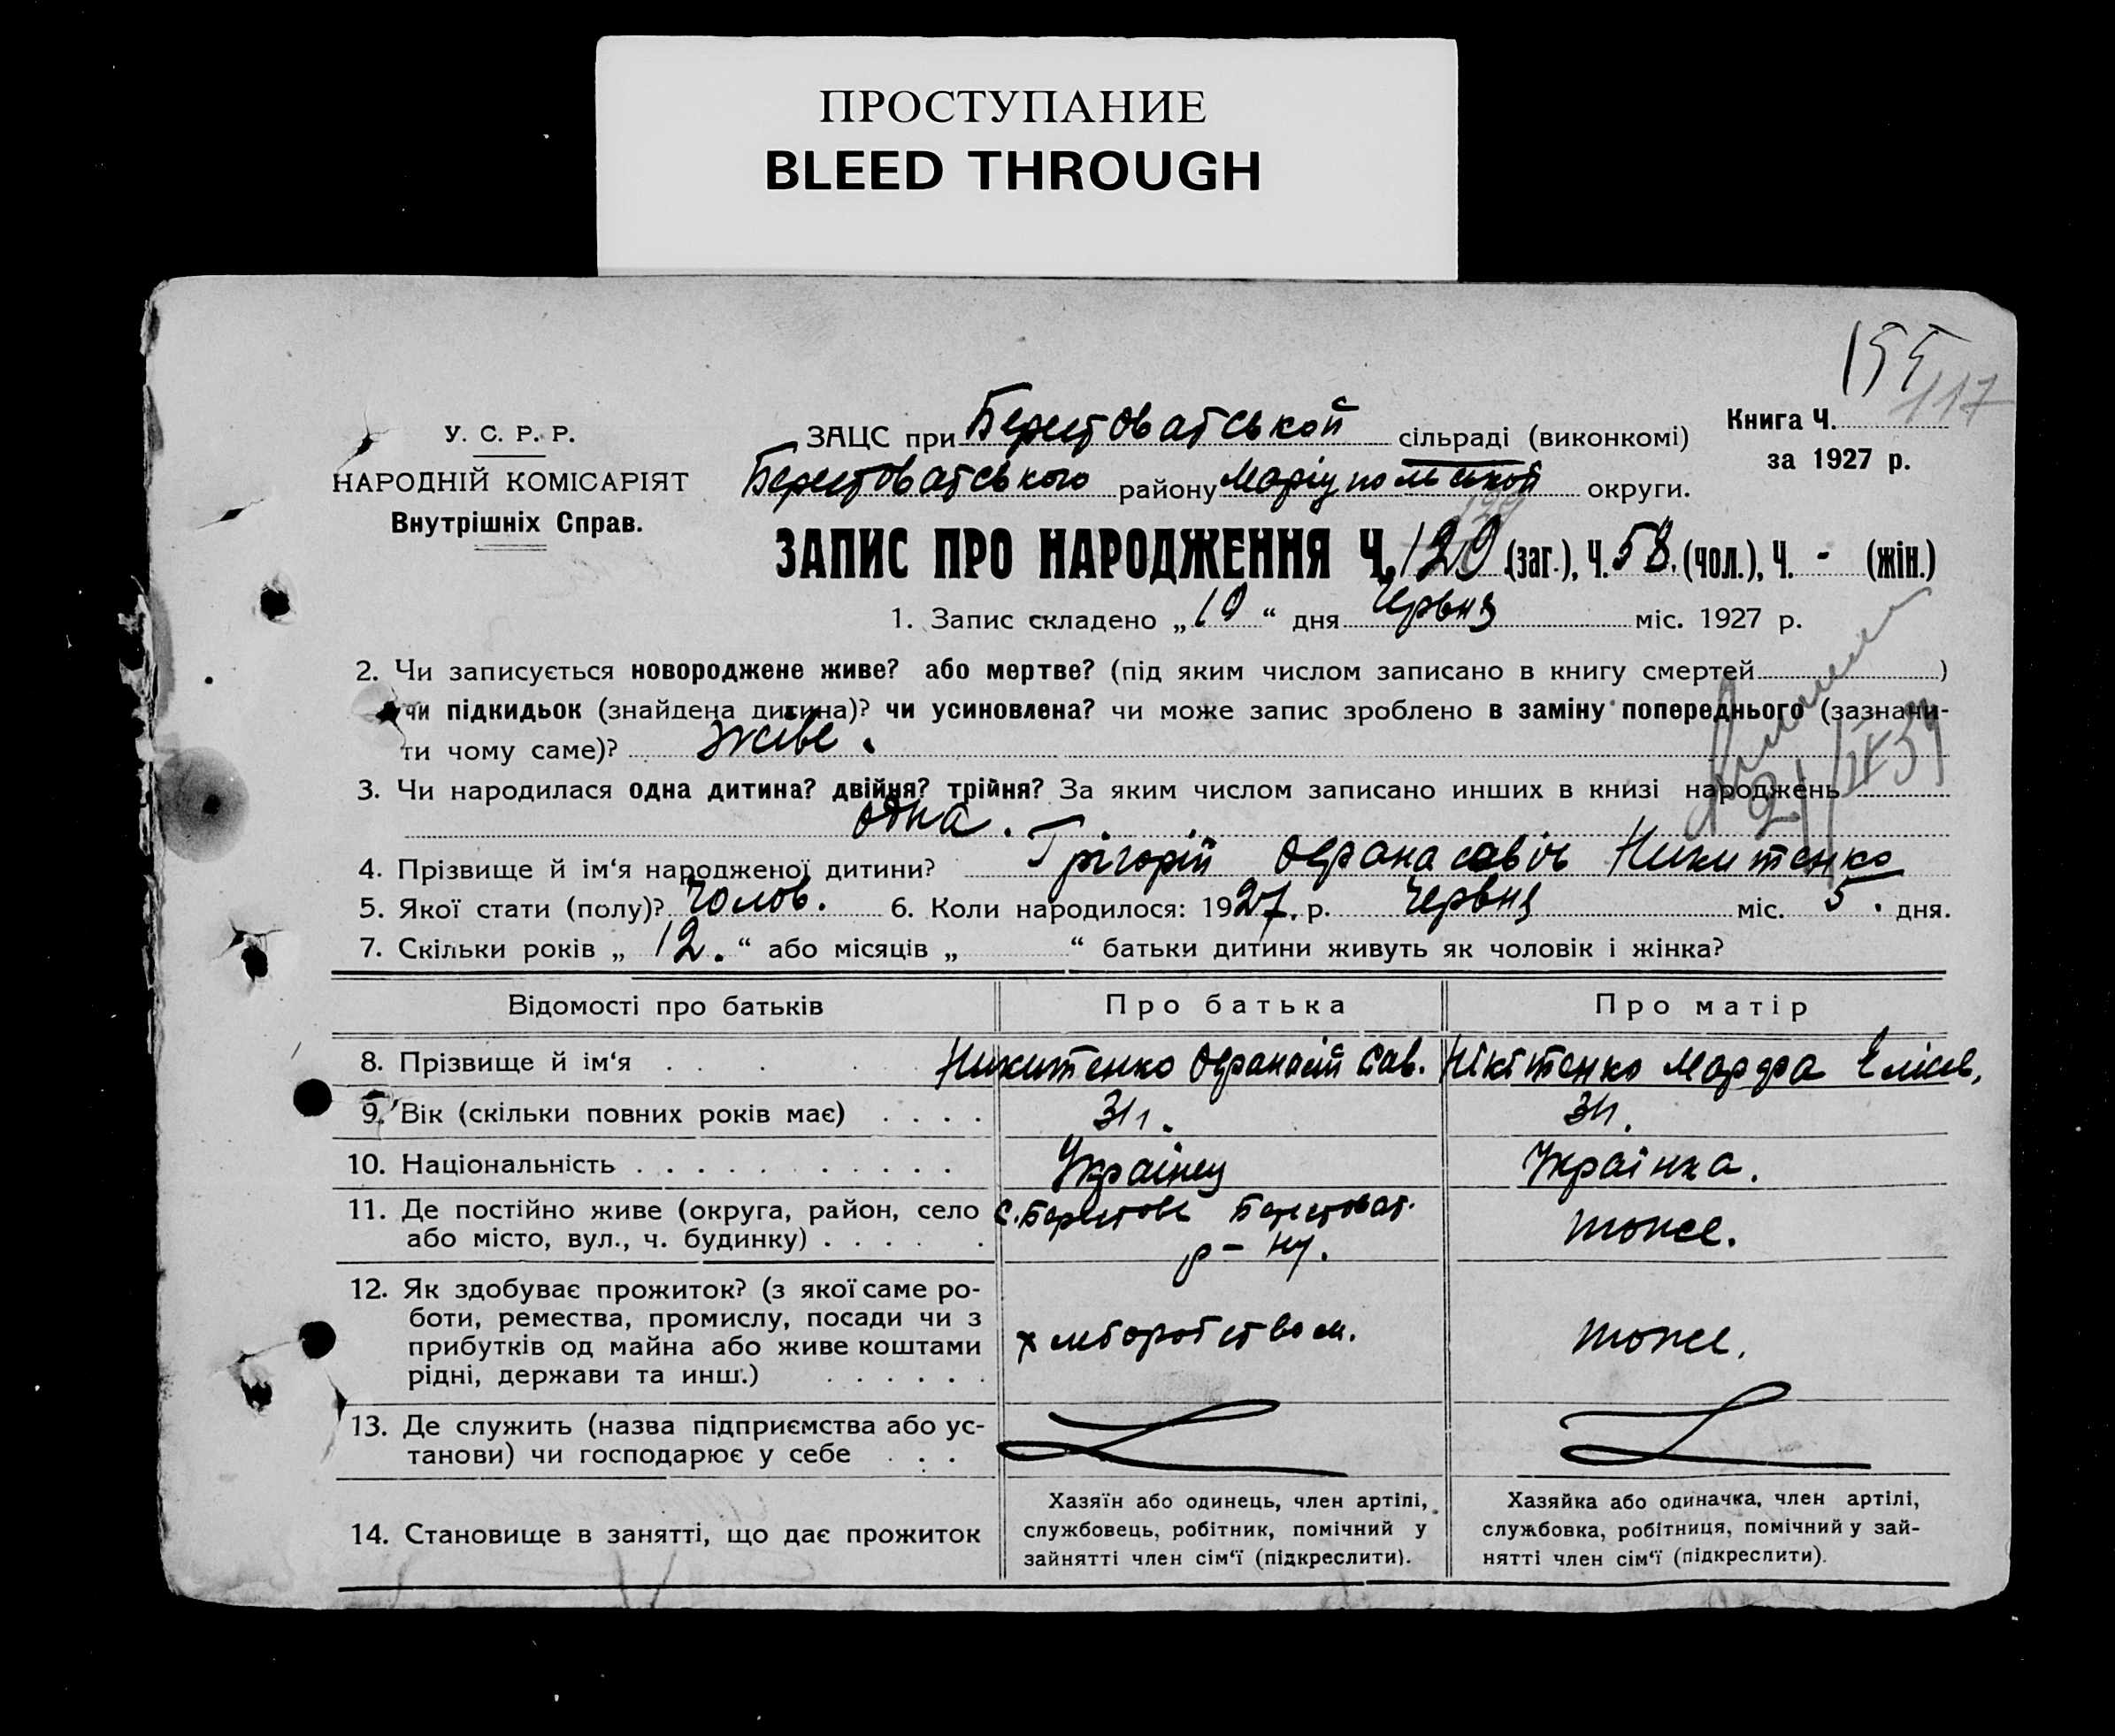 ПРОСТУПАНИЕ
BLEED THROUGH
155
117
У. С. Р. Р.
НАРОДНІЙ КОМІСАРІЯТ
Внутрішніх Справ.
ЗАЦС при Берестоватській сільраді (виконкомі)
Берестоватського району Маріупольской округи.
Книга Ч.
за 1927 р.
129
ЗАПИС ПРО НАРОДЖЕННЯ Ч. 129 (заг.), Ч. 58. (чол.), Ч. - (жін.)
1. Запис складено „19“ дня Червня міс. 1927 р.
2. Чи записується новороджене живе? або мертве? (під яким числом записано в книгу смертей)
чи підкидьок (знайдена дитина)? чи усиновлена? чи може запис зроблено в заміну попереднього (зазначи-
ти чому саме)? живе.
21/IX 39
3. Чи народилася одна дитина? двійня? трійня? За яким числом записано инших в книзі народжень
одна.
4. Прізвище й ім‘я народженої дитини? Грігорій Офранасавіч Никитенко
5. Якої стати (полу)? Чолов. 6. Коли народилося: 1927. р. Червня міс. 5. дня.
7. Скільки років „12.“ або місяців „ “ батьки дитини живуть як чоловік і жінка?
Відомості про батьків Про батька Про матір
8. Прізвище й ім‘я Никитенко Офранасій Сав. Нікітенко Марфа Єлісе.
9. Вік (скільки повних років має) 31 г. 31.
10. Національність Украінец Украінка.
11. Де постійно живе (округа, район, село
або місто, вул., ч. будинку) с. Берестове Берестоват. р-ну. тоже.
12. Як здобуває прожиток? (з якої саме ро-
боти, ремества, промислу, посади чи з
прибутків од майна або живе коштами
рідні, держави та инш.) хліборобством. тоже.
13. Де служить (назва підприємства або ус-
танови) чи господарює у себе
14. Становище в занятті, що дає прожиток
Хазяїн або одинець, член артілі,
службовець, робітник, помічний у
зайнятті член сім‘ї (підкреслити).
Хазяйка або одиначка, член артілі,
службовка, робітниця, помічний у зай-
нятті член сім‘ї (підкреслити).